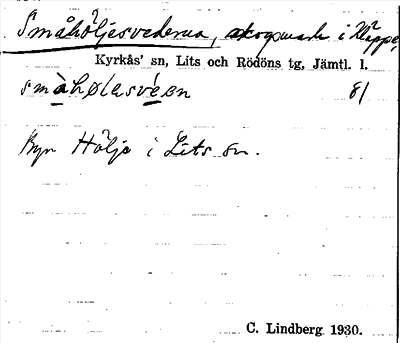 Småhöljesvederna, skogsmark i Kläppe,
Kyrkås' sn, Lits och Rödöns tg, Jämtl. l.
småhølasveen 81
Byn Hölje i Lits sn.
C. Lindberg 1930.